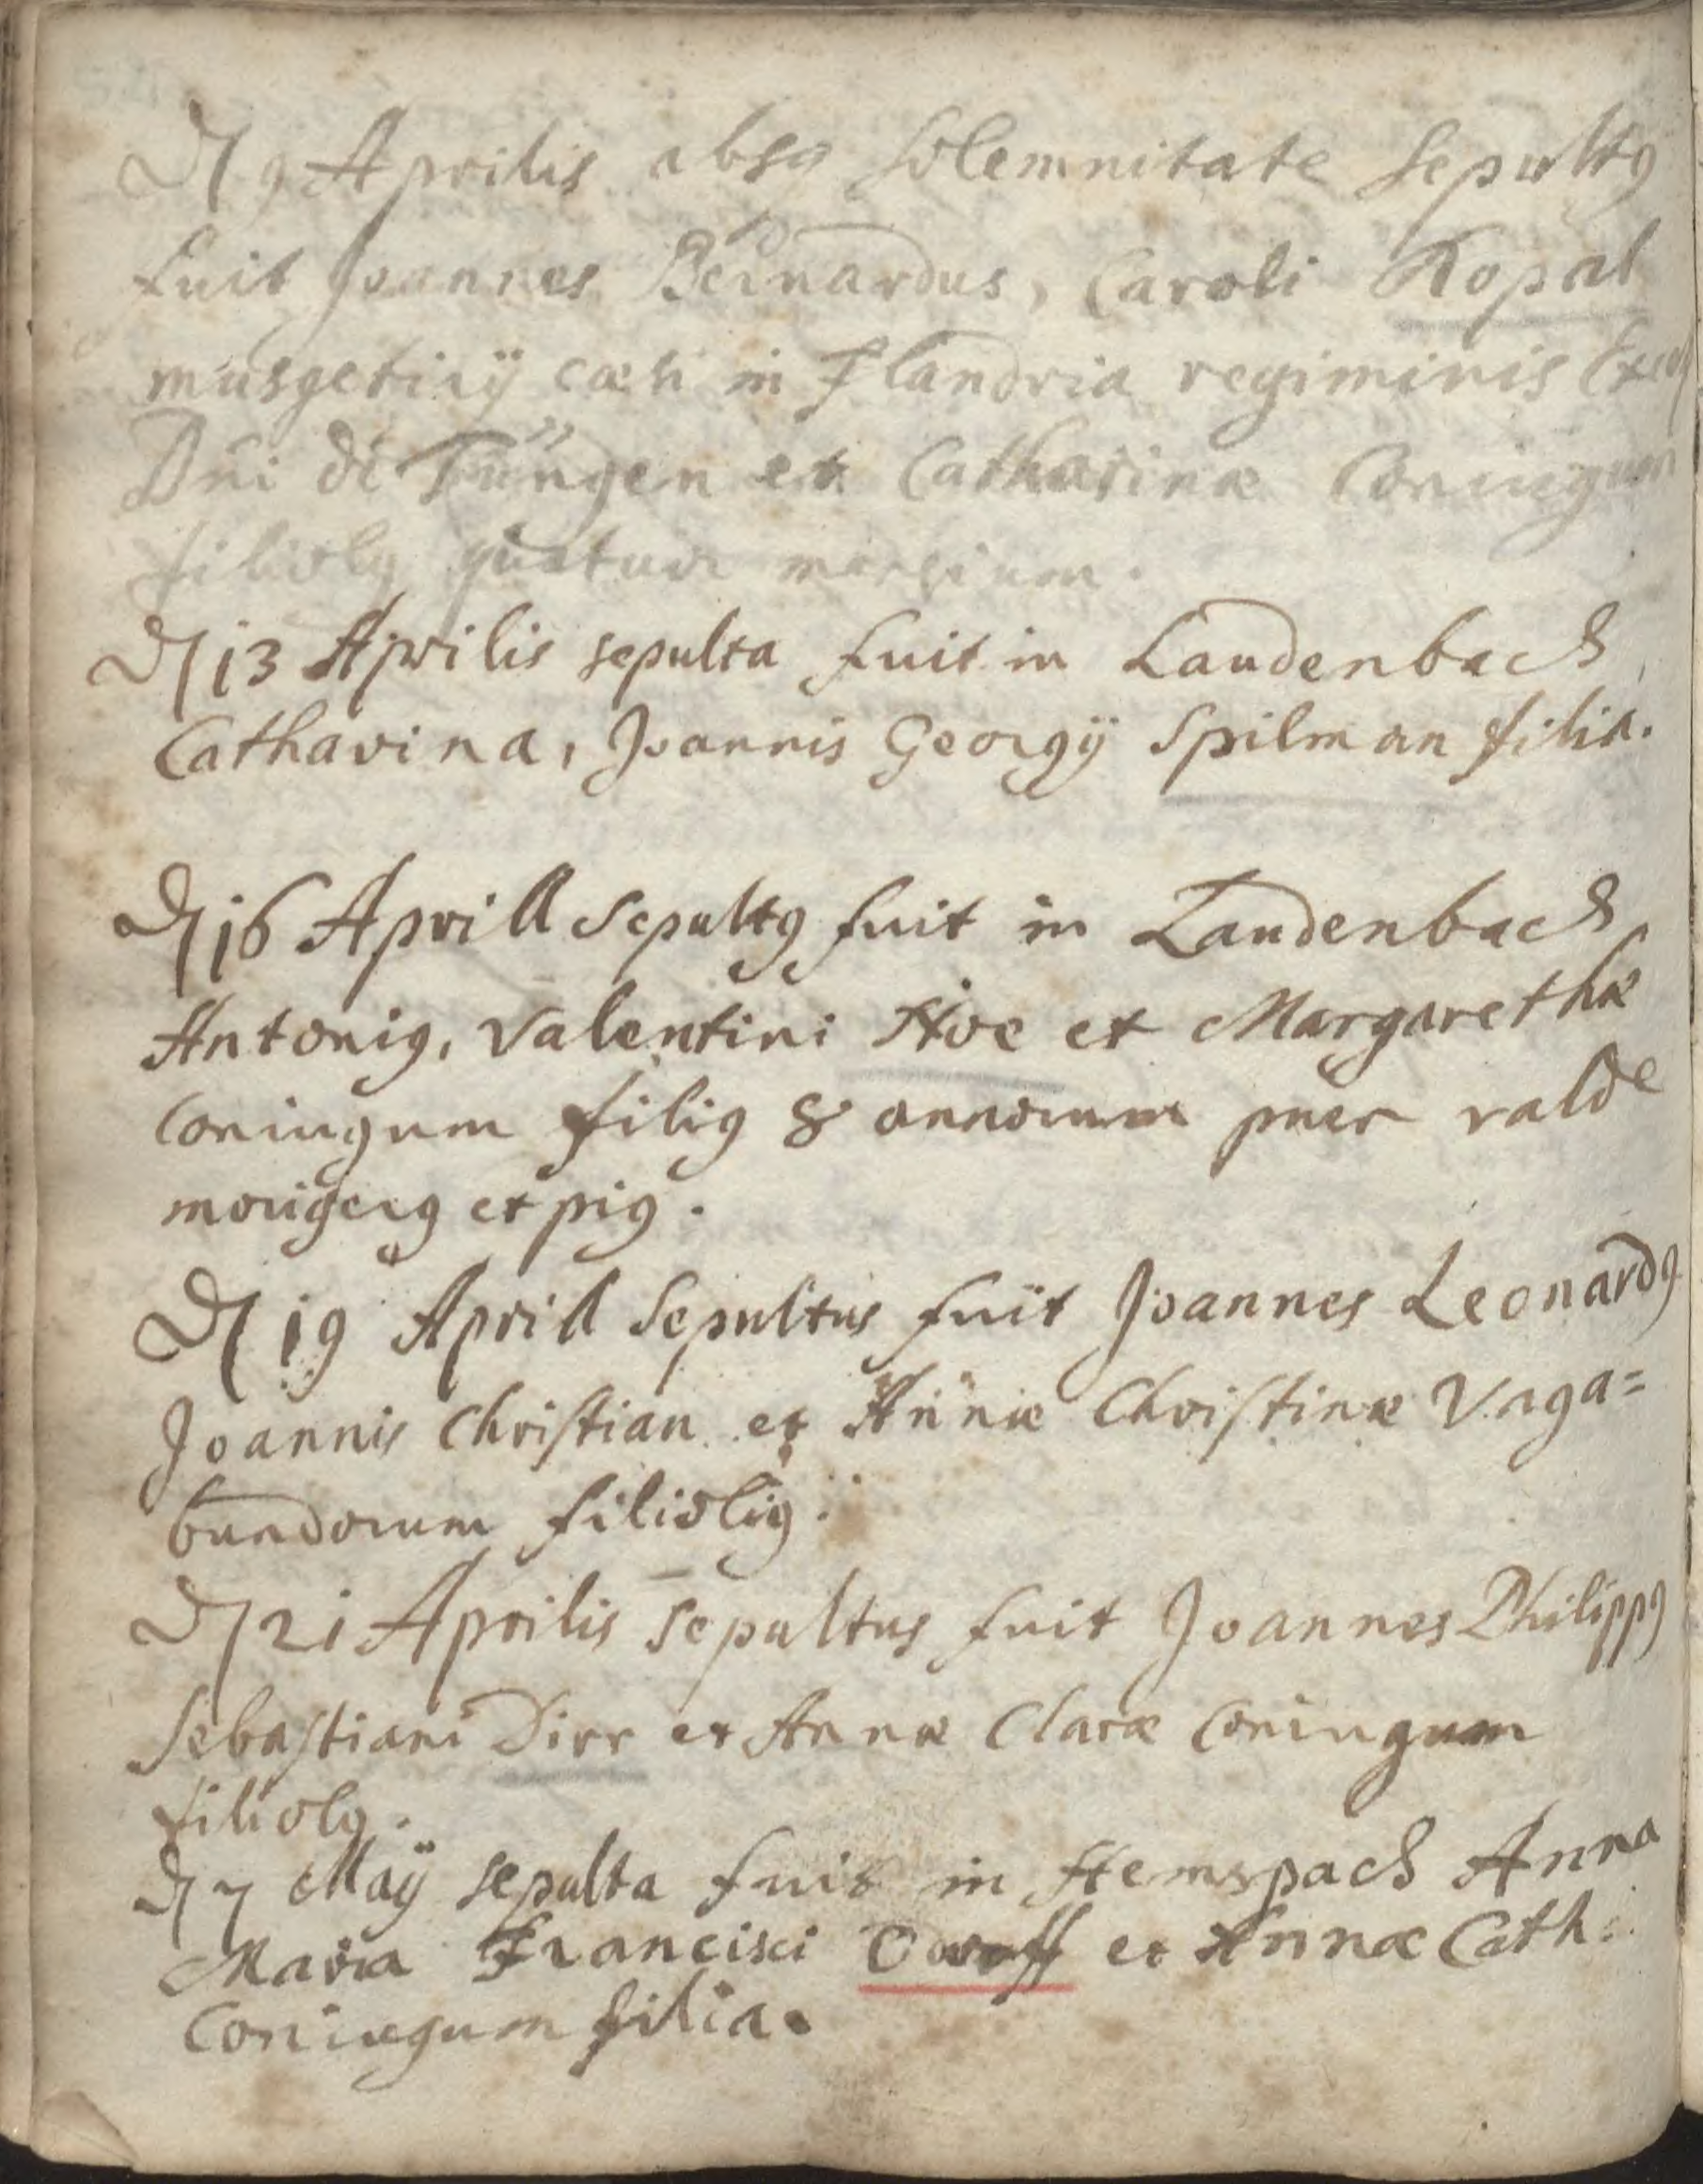 D 9 Aprilis absq solemnitate sepultq
fuit Joannes Bernardus, Caroli Kopal
musgetirÿ cæsi in Flandria regiminis
Dni de Tüngen et Catharinæ Coniugum
filiolq quatuor mensium.
D 13 Aprilis sepulta fuit in Laudenbach
Catharina, Joannis Georgÿ Spilman filia.
D 16 Aprill sepultq fuit in Laudenbach
Antoniq, Valentini Hoe et Margarethæ
Coniugum filiq 8 annorum puer valde
morigerq et piq.
D 19 Aprill sepultus fuit Joannes Leonardq
Joannis Christian et Annæ Christinæ Vaga=
bundorum filioliq.
D 21 Aprilis sepultus fuit Joannes Philippq
Sebastiani Dirr et Annæ Claræ Coniugum
filiolq.
D 7 Maÿ sepulta fuit in Hemspach Anna
Maria Francisci et Annæ Cath:
Coniugum filia.